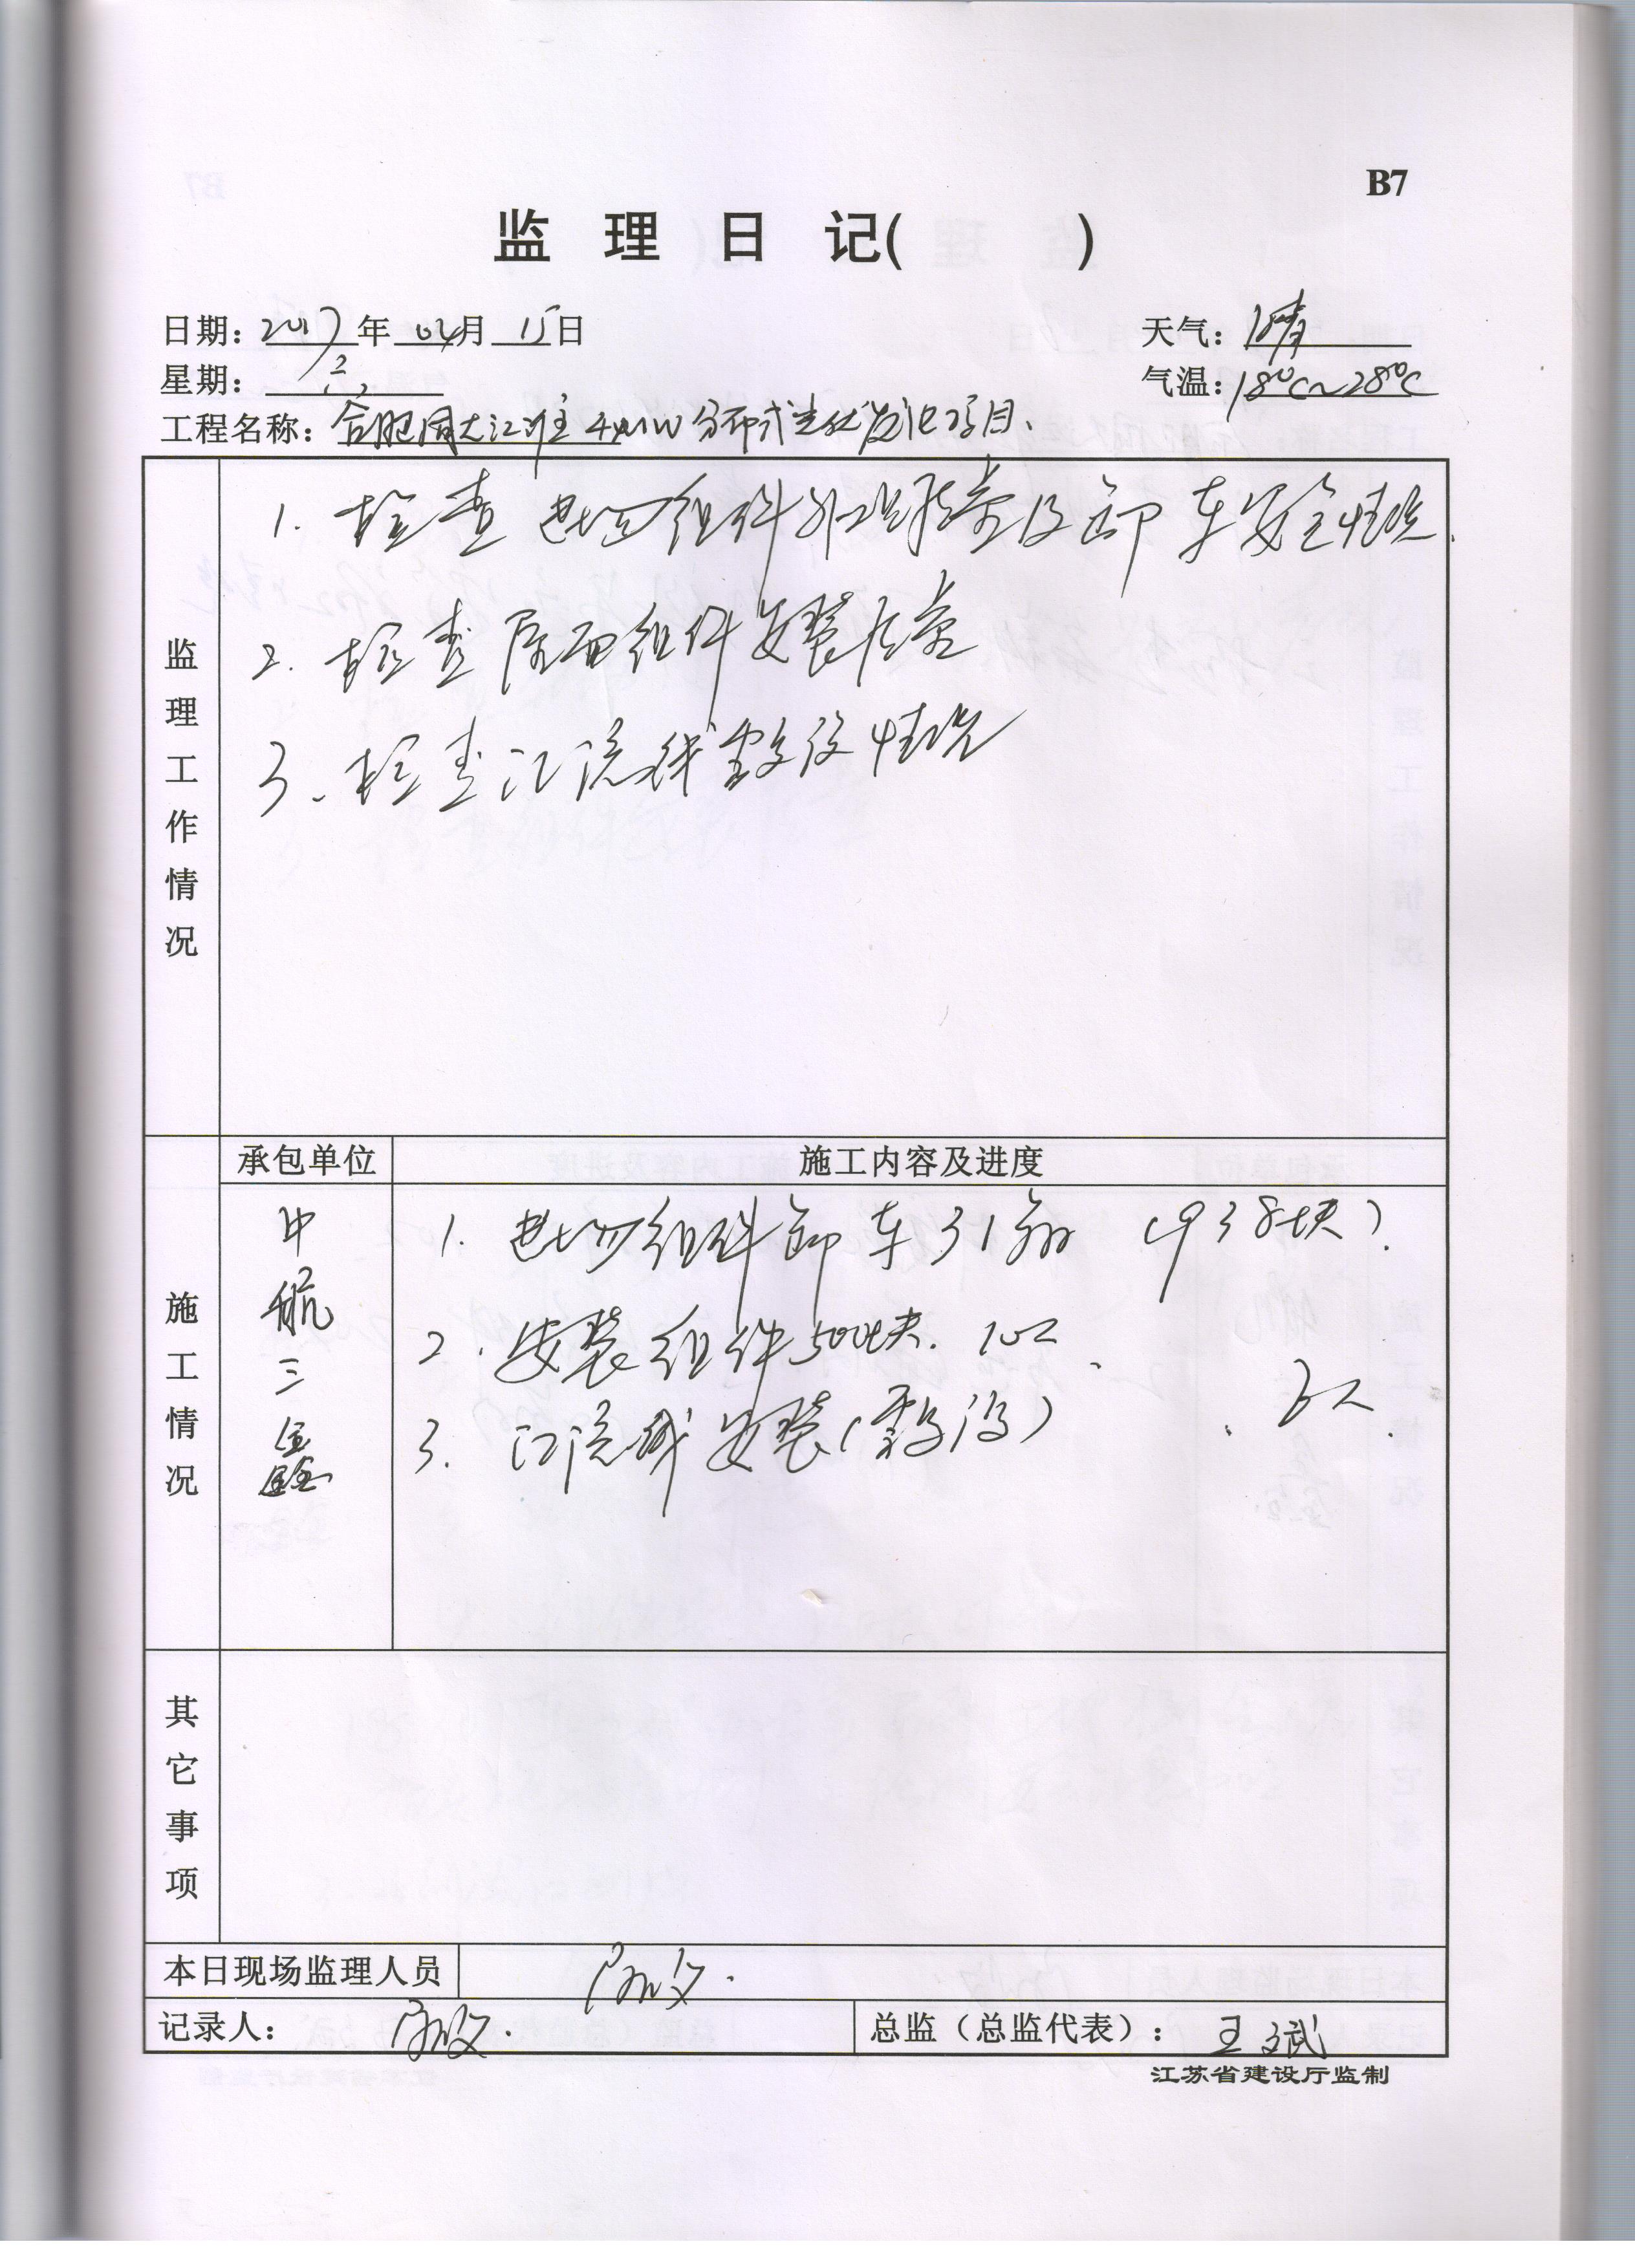 B7
监 理 日 记( )
日期: 2017年 04月 15日
天气: 晴
星期: 六
气温: 18℃~28℃
工程名称: 合肥 大江 4MW分布式光伏发电项目
监理工作情况
1. 检查电池组件外观质量及卸车安全情况.
2. 检查屋面组件安装质量
3、检查汇流线敷设情况
承包单位
施工内容及进度
施工情况
中航三鑫
1. 电池组件卸车31 (938块).
2. 安装组件500块.
3. 汇流线安装(敷设)
其它事项
本日现场监理人员
记录人:
总监(总监代表): 王斌
江苏省建设厅监制